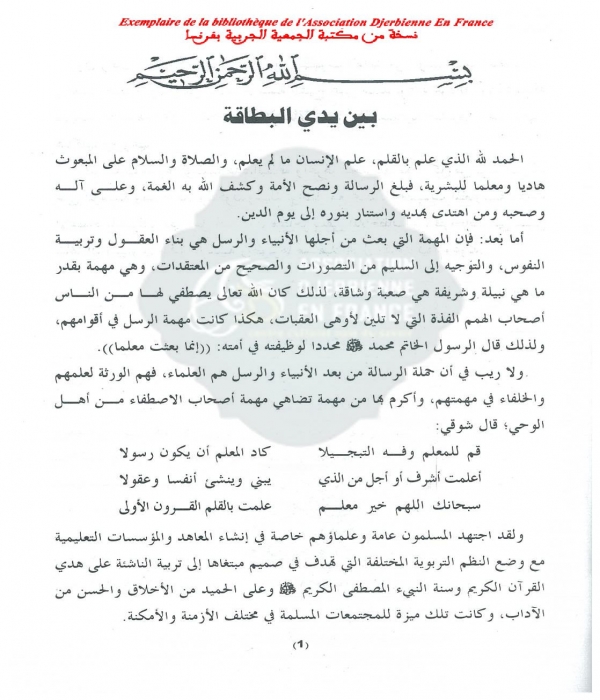 Exemplaire de la bibliothèque de l'Association Djerbienne En France
نسخة من مكتبة الجمعية الجربية بفرنسا
بسم الله الرحمن الرحيم
بين يدي البطاقة
الحمد لله الذي علم بالقلم، علم الإنسان ما لم يعلم، والصلاة والسلام على المبعوث
هاديا ومعلما للبشرية، فبلغ الرسالة ونصح الأمة وكشف الله به الغمة، وعلى آله
وصحبه ومن اهتدى بهديه واستنار بنوره إلى يوم الدين.
أما بعد: فإن المهمة التي بعث من أجلها الأنبياء والرسل هي بناء العقول وتربية
النفوس، والتوجيه إلى السليم من التصورات والصحيح من المعتقدات، وهي مهمة بقدر
ما هي نبيلة وشريفة هي صعبة وشاقة، لذلك كان الله تعالى يصطفي لها من الناس
أصحاب الهمم الفذة التي لا تلين لأوهى العقبات، هكذا كانت مهمة الرسل في أقوامهم،
ولذلك قال الرسول الخاتم محمد ﷺ محددا لوظيفته في أمته: ((إنما بعثت معلما)).
ولا ريب في أن حملة الرسالة من بعد الأنبياء والرسل هم العلماء، فهم الورثة لعلمهم
والخلفاء في مهمتهم، وأكرم بها من مهمة تضاهي مهمة أصحاب الاصطفاء من أهل
الوحي؛ قال شوقي:
قم للمعلم وفه التبجيلا كاد المعلم أن يكون رسولا
أعلمت أشرف أو أجل من الذي يبني وينشئ أنفسا وعقولا
سبحانك اللهم خير معلم علمت بالقلم القرون الأولى
ولقد اجتهد المسلمون عامة وعلماؤهم خاصة في إنشاء المعاهد والمؤسسات التعليمية
مع وضع النظم التربوية المختلفة التي تهدف في صميم مبتغاها إلى تربية الناشئة على هدي
القرآن الكريم وسنة النبيء المصطفى الكريم ﷺ وعلى الحميد من الأخلاق والحسن من
الآداب، وكانت تلك ميزة للمجتمعات المسلمة في مختلف الأزمنة والأمكنة.
(1)